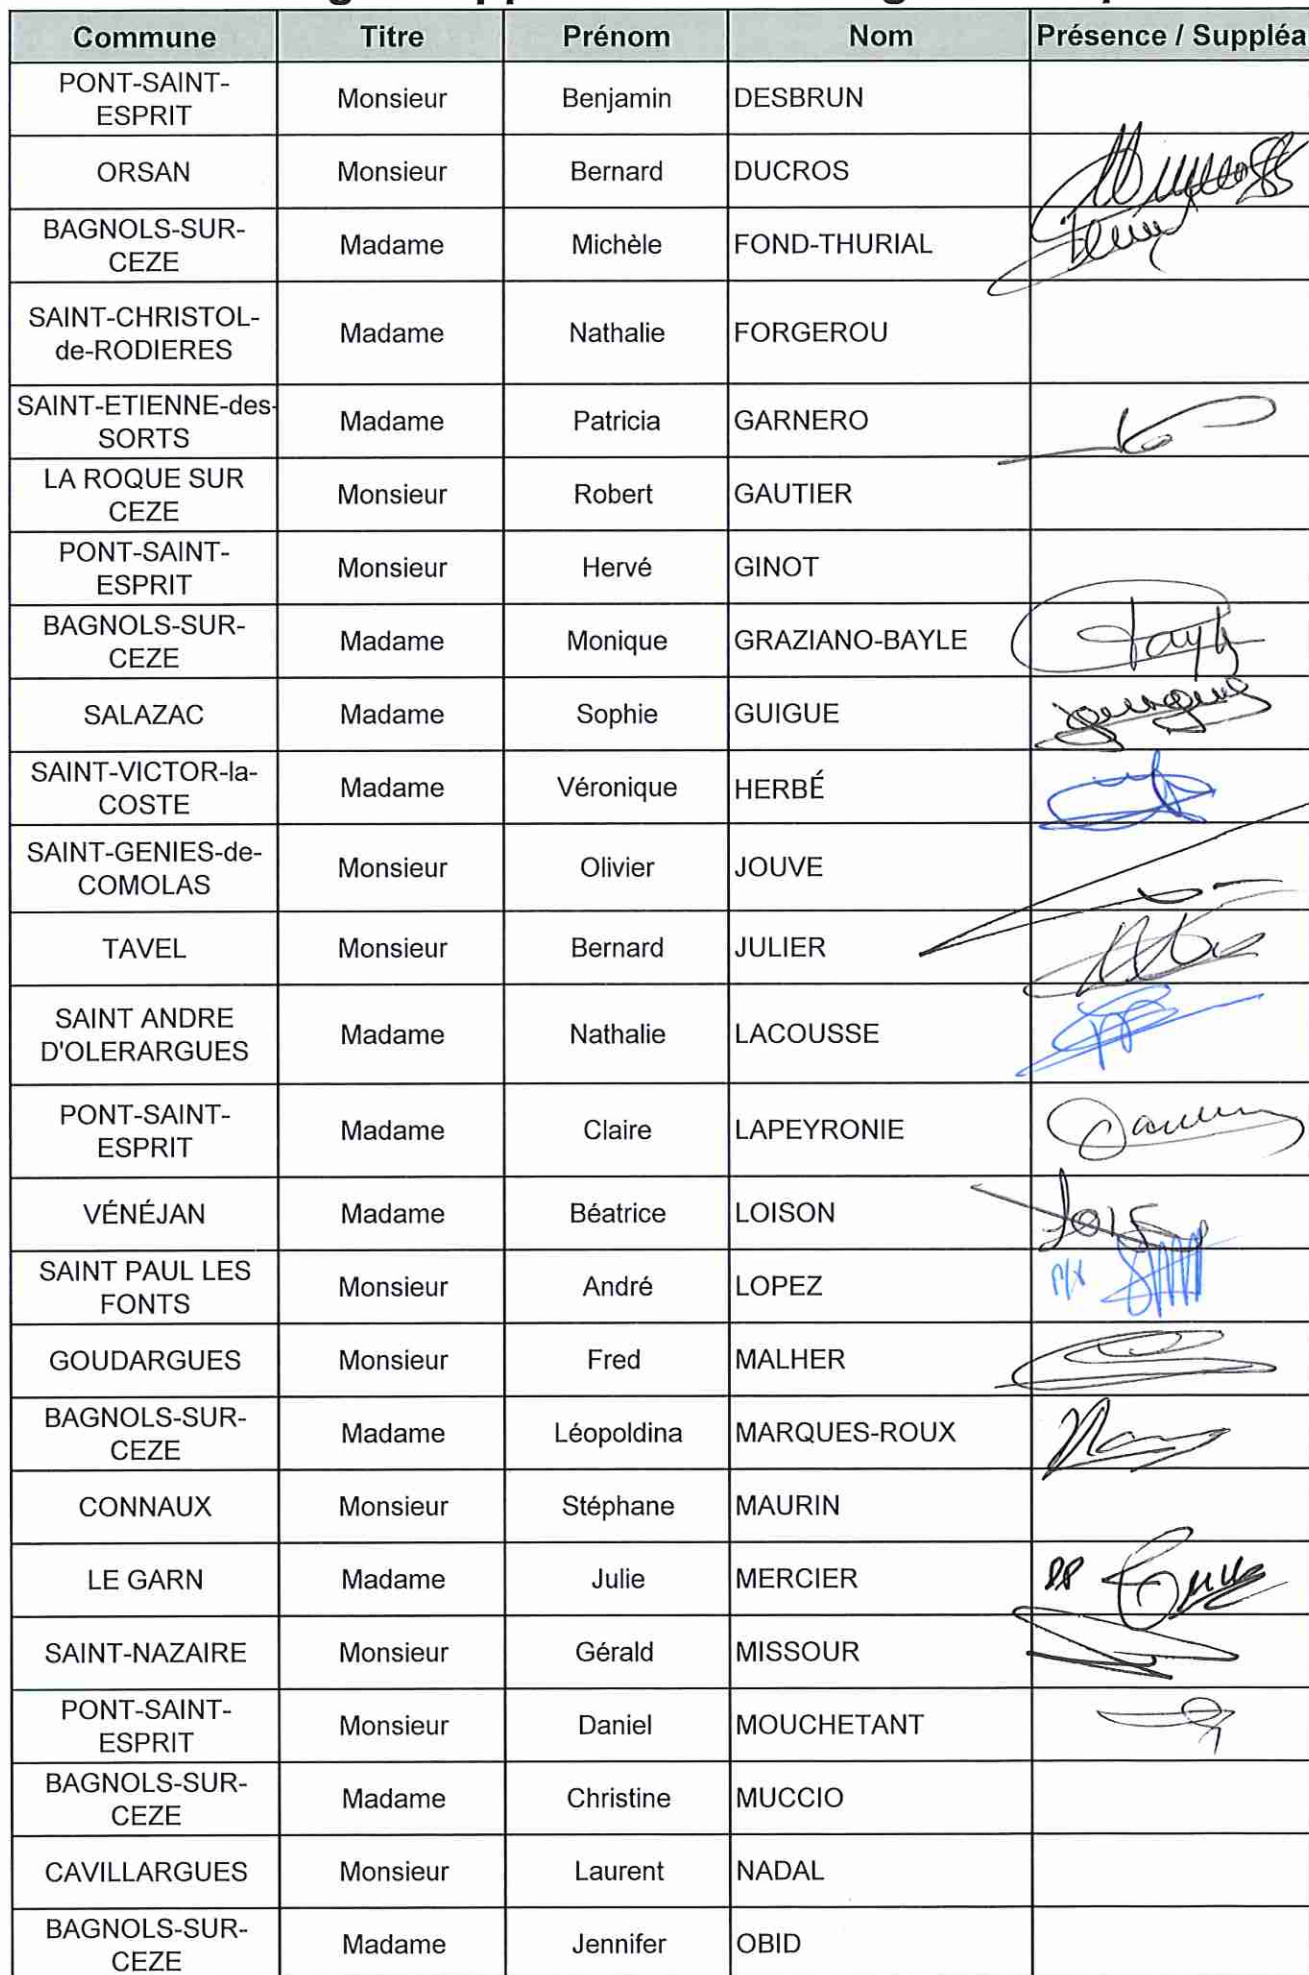 Commune Titre Prénom Nom Présence / Suppléa
PONT-SAINT-
ESPRIT Monsieur Benjamin DESBRUN
ORSAN Monsieur Bernard DUCROS
BAGNOLS-SUR-
CEZE Madame Michèle FOND-THURIAL
SAINT-CHRISTOL-
de-RODIERES Madame Nathalie FORGEROU
SAINT-ETIENNE-des-
SORTS Madame Patricia GARNERO
LA ROQUE SUR
CEZE Monsieur Robert GAUTIER
PONT-SAINT-
ESPRIT Monsieur Hervé GINOT
BAGNOLS-SUR-
CEZE Madame Monique GRAZIANO-BAYLE
SALAZAC Madame Sophie GUIGUE
SAINT-VICTOR-la-
COSTE Madame Véronique HERBÉ
SAINT-GENIES-de-
COMOLAS Monsieur Olivier JOUVE
TAVEL Monsieur Bernard JULIER
SAINT ANDRE
D'OLERARGUES Madame Nathalie LACOUSSE
PONT-SAINT-
ESPRIT Madame Claire LAPEYRONIE
VÉNÉJAN Madame Béatrice LOISON
SAINT PAUL LES
FONTS Monsieur André LOPEZ
GOUDARGUES Monsieur Fred MALHER
BAGNOLS-SUR-
CEZE Madame Léopoldina MARQUES-ROUX
CONNAUX Monsieur Stéphane MAURIN
LE GARN Madame Julie MERCIER
SAINT-NAZAIRE Monsieur Gérald MISSOUR
PONT-SAINT-
ESPRIT Monsieur Daniel MOUCHETANT
BAGNOLS-SUR-
CEZE Madame Christine MUCCIO
CAVILLARGUES Monsieur Laurent NADAL
BAGNOLS-SUR-
CEZE Madame Jennifer OBID